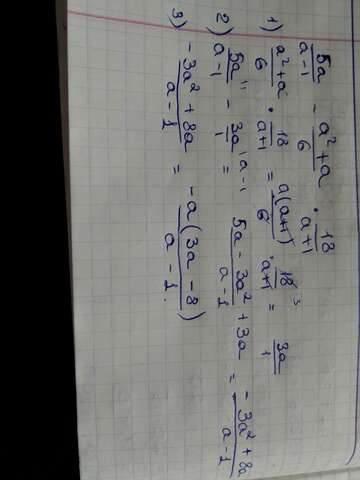 5a/(a-1) - (a²+a)/6 · 18/(a+1)
1) (a²+a)/6 · 18/(a+1) = a(a+1)/6 · 18³/(a+1) = 3a/1
2) 5a/(a-1) - 3a/1 = (5a - 3a² + 3a)/(a-1) = (-3a² + 8a)/(a-1)
3) (-3a² + 8a)/(a-1) = -a(3a - 8)/(a-1).